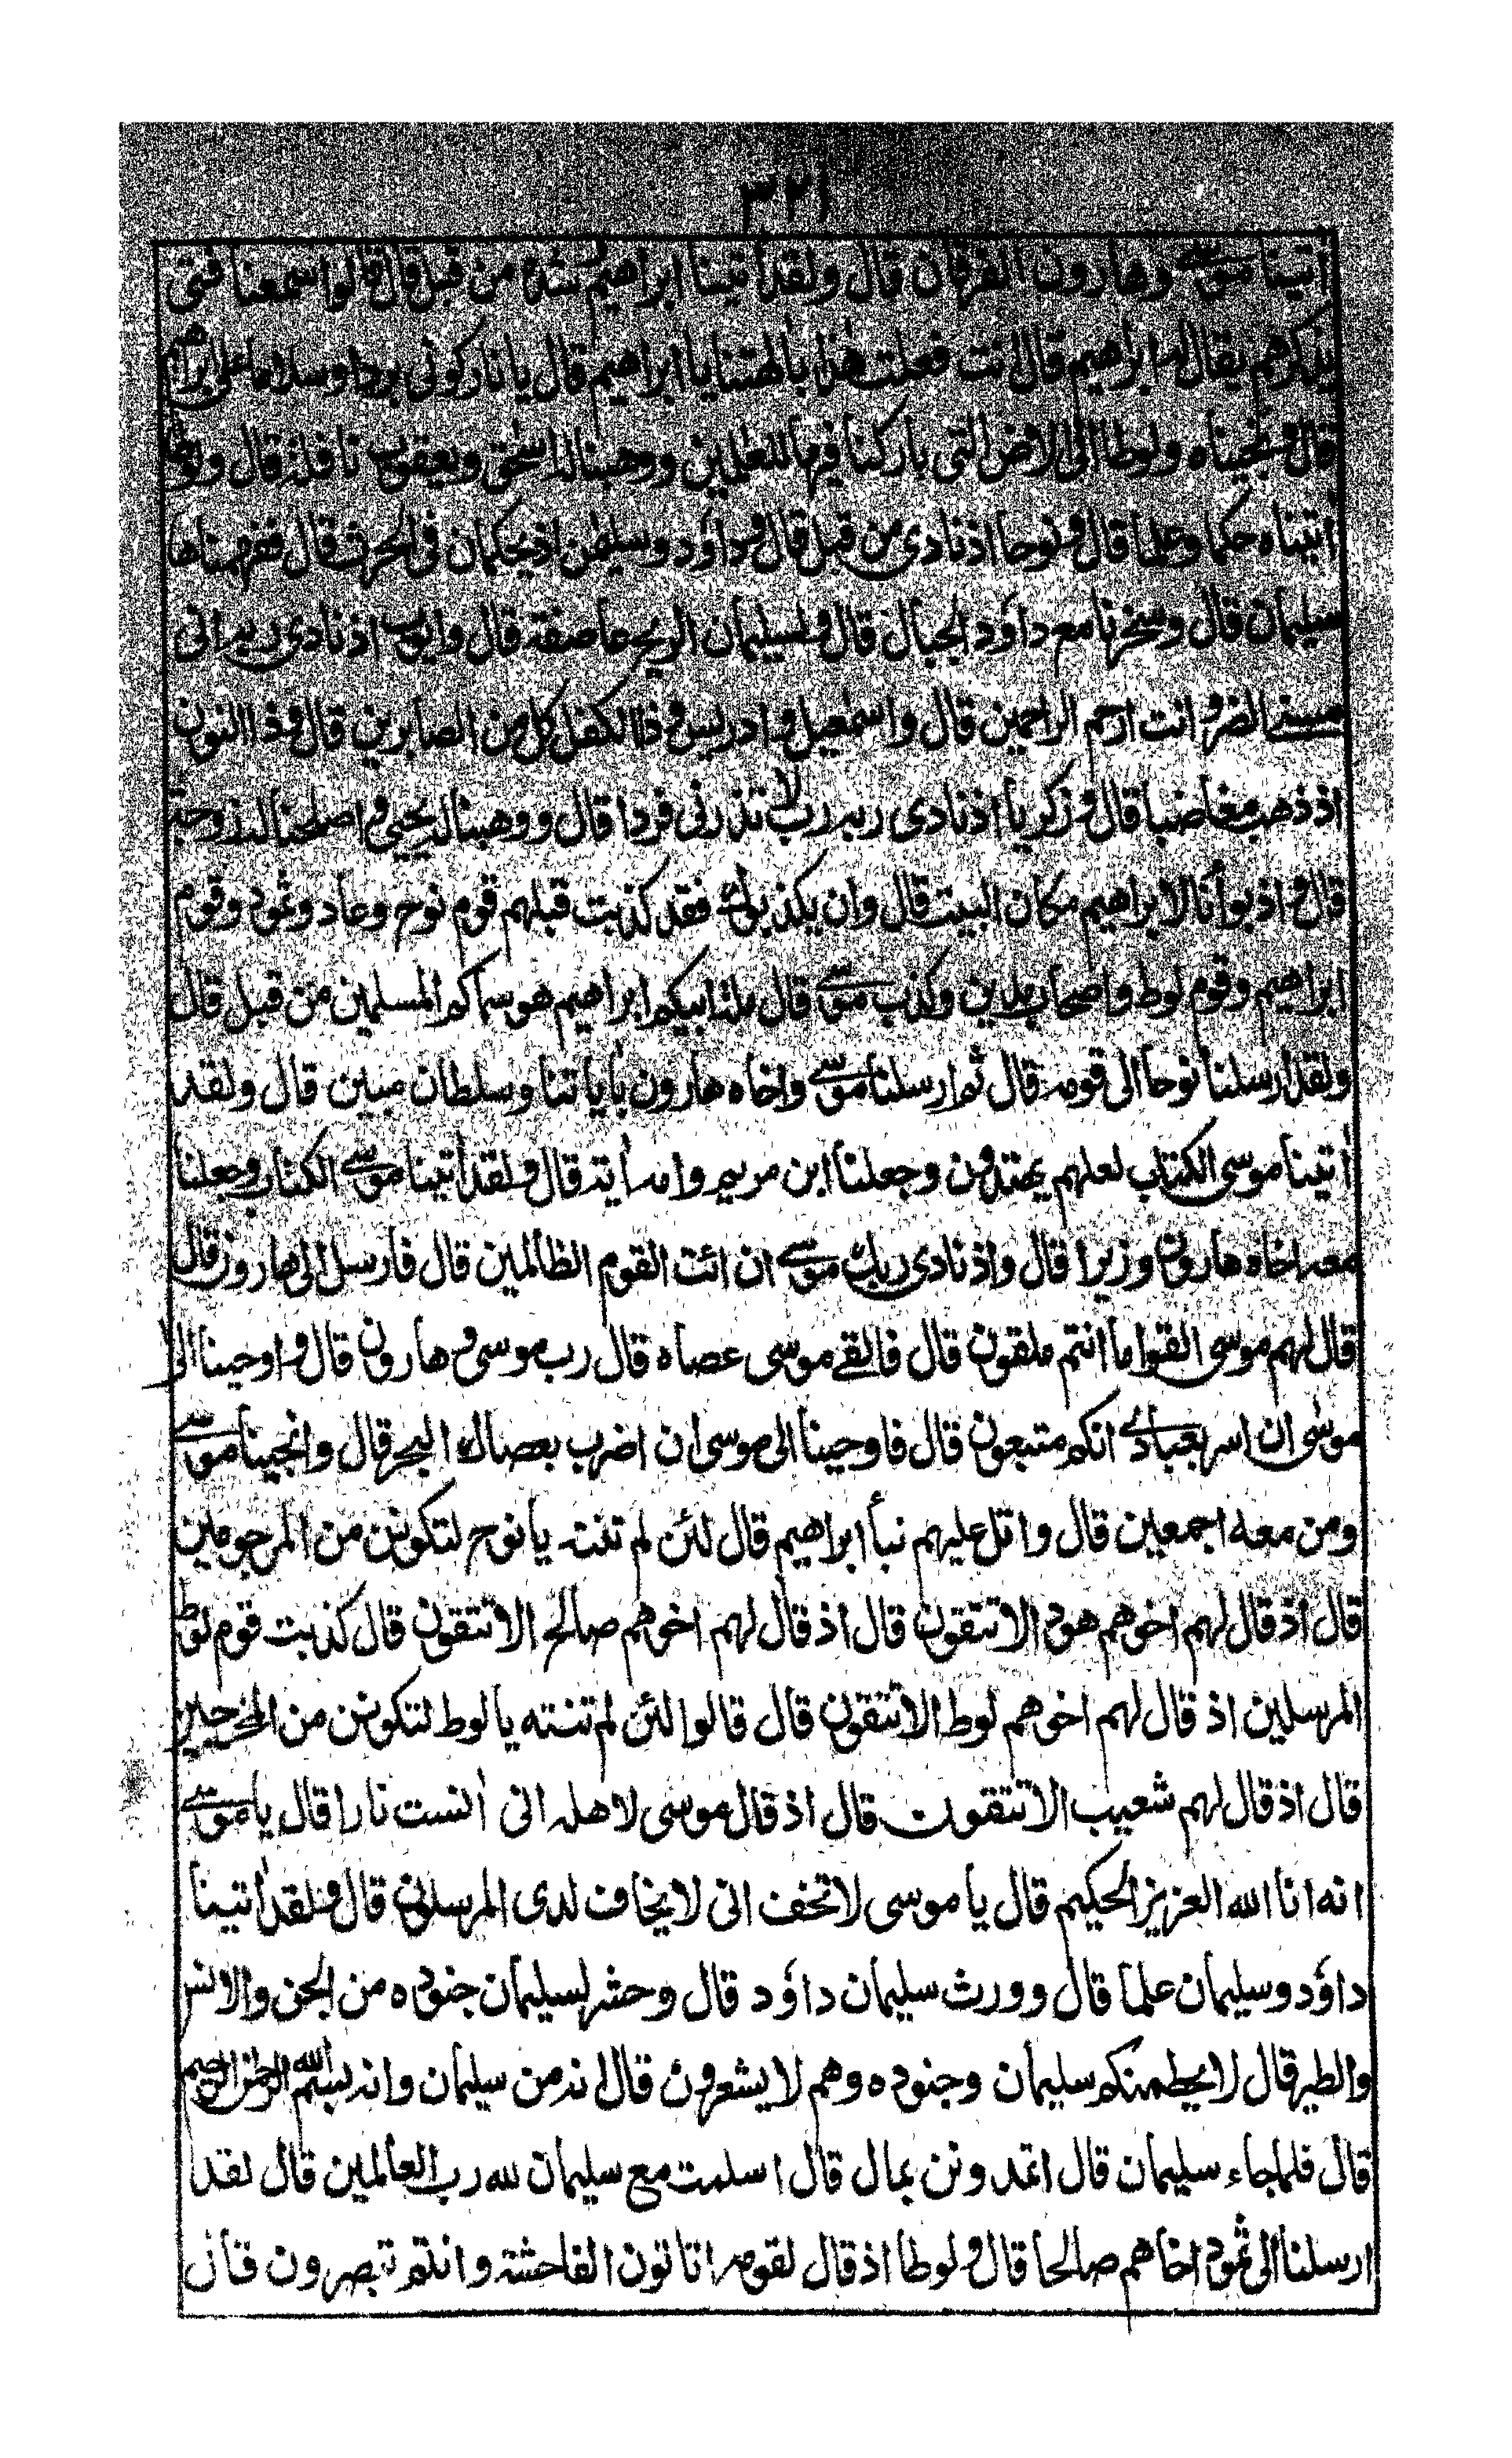 ٣٢١
أتينا موسى وهارون الفرقان قال ولقد أتينا ابراهيم رشده من قبل قال قالوا سمعنا فتى
يذكرهم يقال له ابراهيم قال انت فعلت هذا بالهتنا يا ابراهيم قال يا نار كونى بردا وسلاما على ابراهيم
قال ونجيناه ولوطا الى الارض التى باركنا فيها للعلمين ووهبنا له اسحق ويعقوب نافلة قال ولوطا
أتيناه حكما وعلما قال ونوحا اذ نادى من قبل قال وداؤد وسليمن اذ يحكمان فى الحرث قال ففهمناها
سليمان قال وسخرنا مع داؤد الجبال قال ولسليمان الريح عاصفة قال وايوب اذ نادى ربه انى
مسنى الضر وانت ارحم الراحمين قال واسمعيل وادريس وذا الكفل كل من الصابرين قال وذا النون
اذ ذهب مغاضبا قال وزكريا اذ نادى ربه رب لا تذرنى فردا قال ووهبنا له يحيى واصلحنا له زوجه
قال واذ بوأنا لابراهيم مكان البيت قال وان يكذبوك فقد كذبت قبلهم قوم نوح وعاد وثمود وقوم
ابراهيم وقوم لوط واصحاب مدين وكذب موسى قال ملة ابيكم ابراهيم هو سماكم المسلمين من قبل قال
ولقد ارسلنا نوحا الى قومه قال ثم ارسلنا موسى واخاه هارون بأياتنا وسلطان مبين قال ولقد
أتينا موسى الكتاب لعلهم يهتدون وجعلنا ابن مريم وامه أية قال ولقد أتينا موسى الكتاب وجعلنا
معه اخاه هارون وزيرا قال واذ نادى ربك موسى ان ائت القوم الظالمين قال فارسل الى هارون قال
قال لهم موسى القوا ما انتم ملقون قال فالقى موسى عصاه قال رب موسى وهارون قال واوحينا الى
موسى ان اسر بعبادى انكم متبعون قال فاوحينا الى موسى ان اضرب بعصاك البحر قال وانجينا موسى
ومن معه اجمعين قال واتل عليهم نبأ ابراهيم قال لئن لم تنته يا نوح لتكونن من المرجومين
قال اذ قال لهم اخوهم هود الا تتقون قال اذ قال لهم اخوهم صالح الا تتقون قال كذبت قوم لوط
المرسلين اذ قال لهم اخوهم لوط الا تتقون قال قالوا لئن لم تنته يا لوط لتكونن من المخرجين
قال اذ قال لهم شعيب الا تتقون قال اذ قال موسى لاهله انى أنست نارا قال يا موسى
انه انا الله العزيز الحكيم قال يا موسى لا تخف انى لا يخاف لدى المرسلون قال ولقد أتينا
داؤد وسليمان علما قال وورث سليمان داؤد قال وحشر لسليمان جنوده من الجن والانس
والطير قال لا يحطمنكم سليمان وجنوده وهم لا يشعرون قال انه من سليمان وانه بسم الله الرحمن الرحيم
قال فلما جاء سليمان قال اتمدونن بمال قال اسلمت مع سليمان لله رب العالمين قال لقد
ارسلنا الى ثمود اخاهم صالحا قال ولوطا اذ قال لقومه اتاتون الفاحشة وانتم تبصرون قال